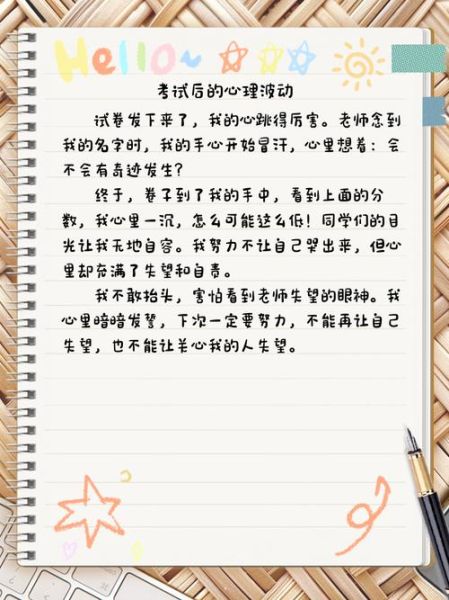 Hello~
考试后的心理波动
试卷发下来了，我的心跳得厉害。老师念到
我的名字时，我的手心开始冒汗，心里想着：会
不会有奇迹发生？
终于，卷子到了我的手中，看到上面的分
数，我心里一沉，怎么可能这么低！同学们的目
光让我无地自容。我努力不让自己哭出来，但心
里却充满了失望和自责。
我不敢抬头，害怕看到老师失望的眼神。我
心里暗暗发誓，下次一定要努力，不能再让自己
失望，也不能让关心我的人失望。